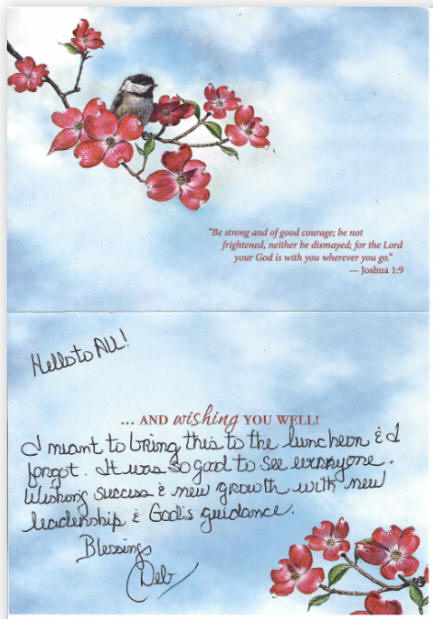 "Be strong and of good courage; be not
frightened, neither be dismayed; for the Lord
your God is with you wherever you go."
— Joshua 1:9
Hello to All!
... AND wishing YOU WELL!
I meant to bring this to the luncheon & I
forgot. It was so good to see everyone.
Wishing success & new growth with new
leadership & God's guidance.
Blessings
Deb